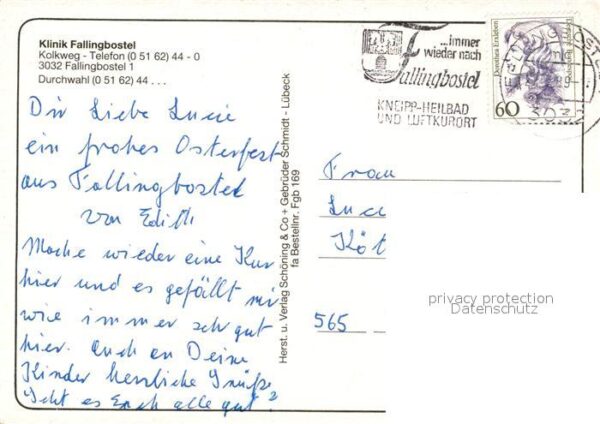 Klinik Fallingbostel
Kolkweg - Telefon (0 51 62) 44 - 0
3032 Fallingbostel 1
Durchwahl (0 51 62) 44 . . .
Dir Liebe Lucie
ein frohes Osterfest
aus Fallingbostel
von Edith
Mache wieder eine Kur
hier und es gefällt mir
wie immer sehr gut
hier. Auch an Deine
Kinder herzliche Grüße
Geht es Euch alle gut?
Herst. u. Verlag Schöning & Co + Gebrüder Schmidt - Lübeck
fa Bestellnr. Fgb 169
...immer
wieder nach
Fallingbostel
KNEIPP-HEILBAD
UND LUFTKURORT
Dorothea Erxleben
60
Frau
Luc
Köt
565
privacy protection
Datenschutz